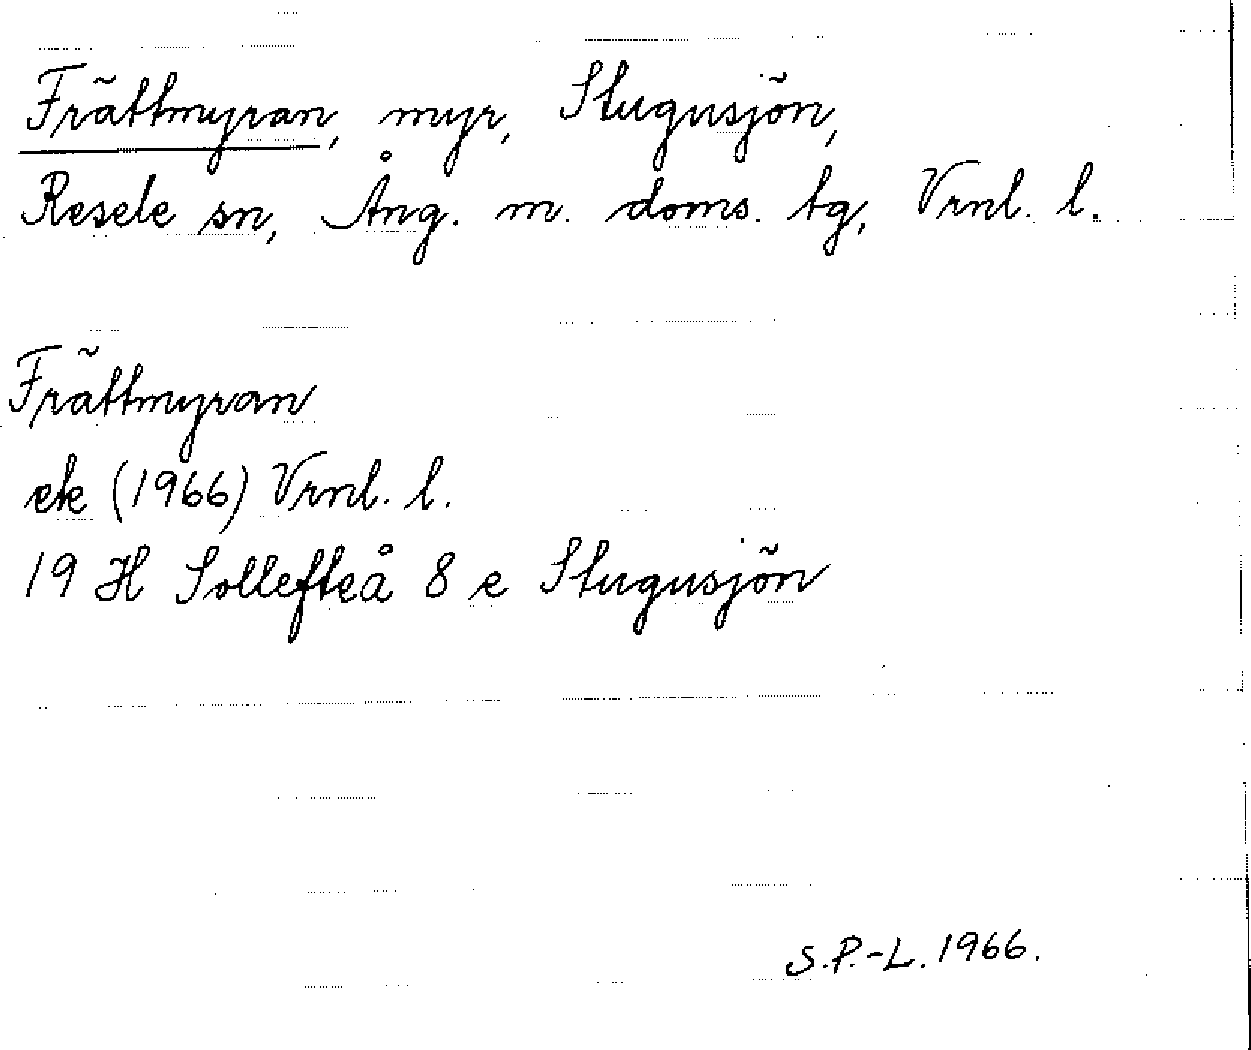 Frättmyran, myr, Stugusjön,
Resele sn, Ång. m. doms. tg, Vrnl. l.
Frättmyran
ek (1966) Vrnl. l.
19 H Sollefteå 8 e Stugusjön
S.P.-L. 1966.